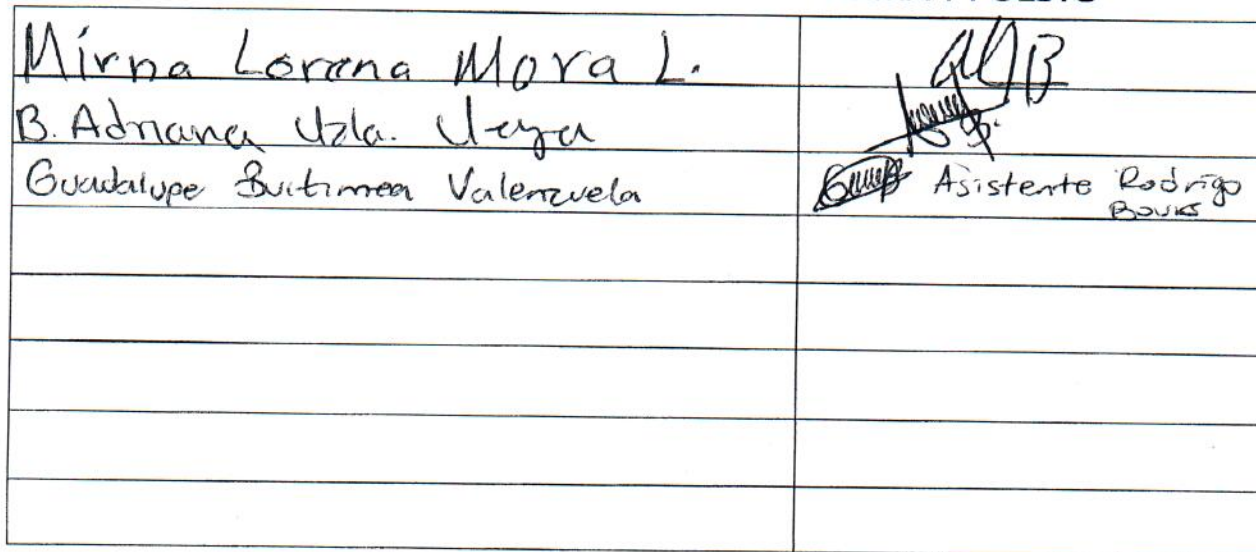 Mirna Lorena Mora L.
B. Adriana
Guadalupe Buitimea Valenzuela
Asistente Rodrigo
Bours